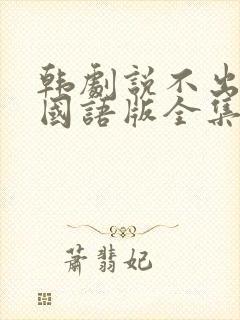 韩劇説不出
國語版全集
蕭翡妃